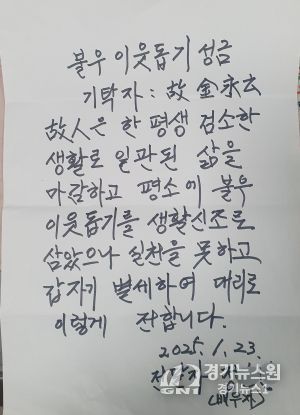 불우 이웃돕기 성금
기탁자 : 故 金永玄
故人은 한 평생 검소한
생활로 일관된 삶을
마감하고 평소에 불우
이웃돕기를 생활신조로
삼았으나 실천을 못하고
갑자기 별세하여 대리로
이렇게 전합니다.
2025. 1. 23.
경기뉴스원
경기뉴스1
(배우자)